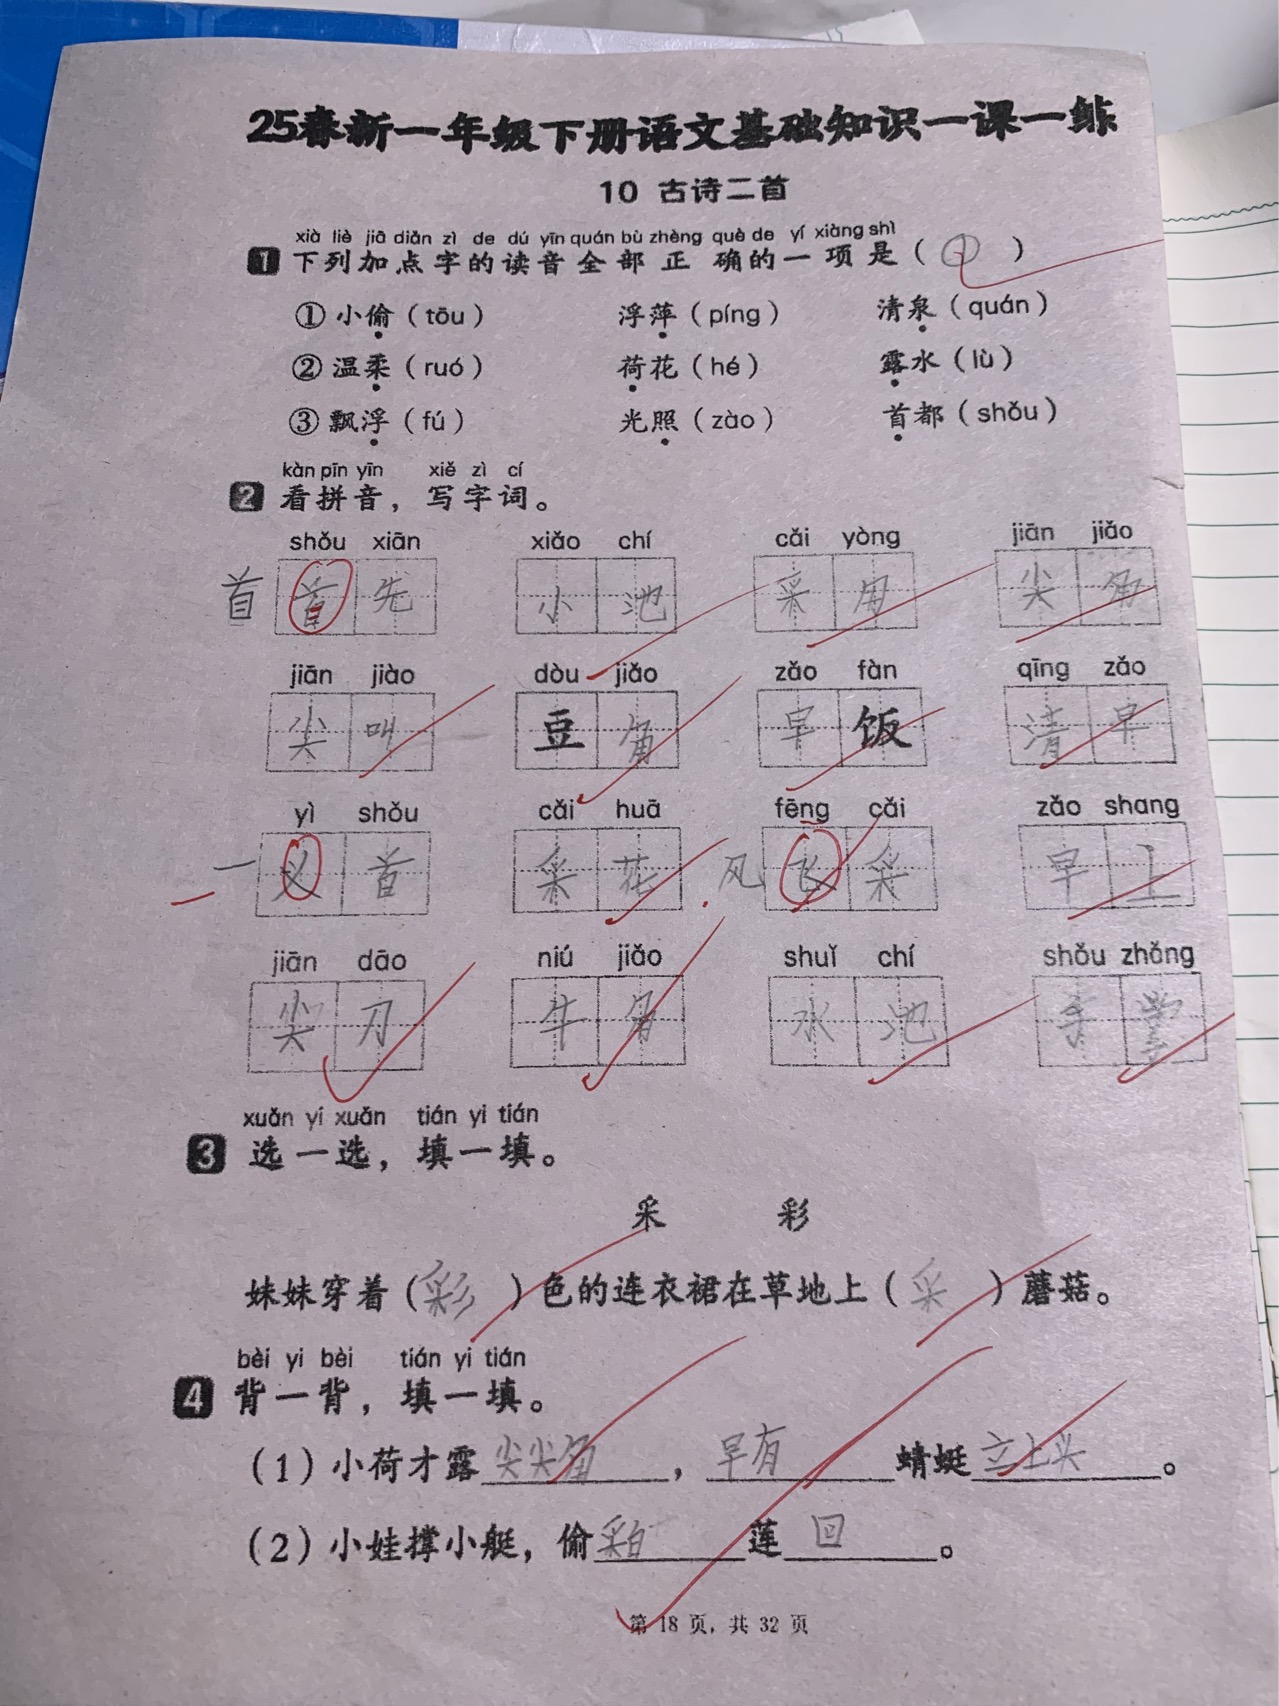 25春新一年级下册语文基础知识一课一练
10 古诗二首
xià liè jiā diǎn zì de dú yīn quán bù zhèng què de yí xiàng shì
1 下列加点字的读音全部正确的一项是（ ① ）
①小偷（tōu） 浮萍（píng） 清泉（quán）
②温柔（ruó） 荷花（hé） 露水（lù）
③飘浮（fú） 光照（zào） 首都（shǒu）
kàn pīn yīn xiě zì cí
2 看拼音，写字词。
shǒu xiān xiǎo chí cǎi yòng jiān jiǎo
首 首先 小池 采用 尖角
jiān jiào dòu jiǎo zǎo fàn qīng zǎo
尖叫 豆角 早饭 清早
yì shǒu cǎi huā fēng cǎi zǎo shang
一 义首 采花 风 飞采 早上
jiān dāo niú jiǎo shuǐ chí shǒu zhǎng
尖刀 牛角 水池 手掌
xuǎn yi xuǎn tián yi tián
3 选一选，填一填。
采 彩
妹妹穿着（彩）色的连衣裙在草地上（采）蘑菇。
bèi yi bèi tián yi tián
4 背一背，填一填。
（1）小荷才露尖尖角，早有蜻蜓立上头。
（2）小娃撑小艇，偷采白莲回。
第 18 页，共 32 页